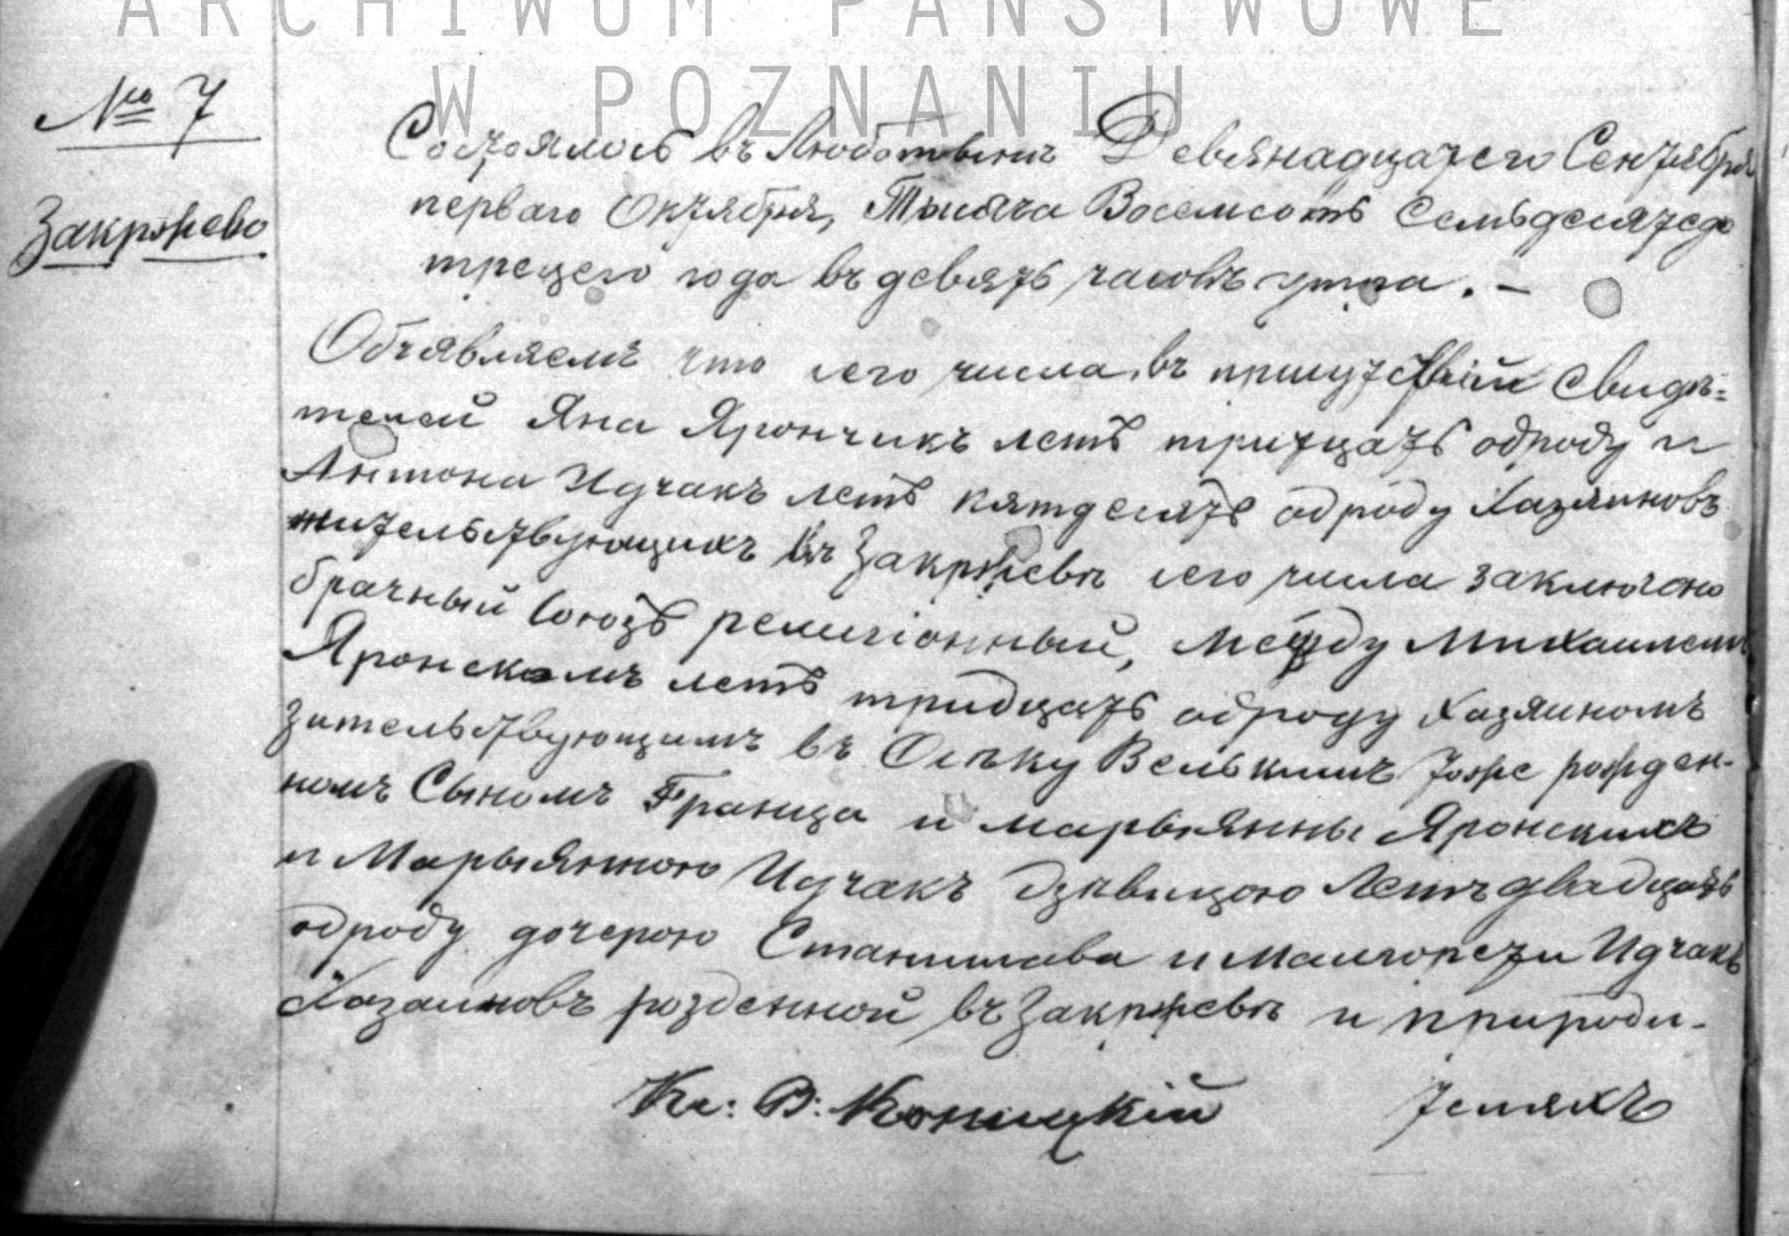 ARCHIWUM PAŃSTWOWE
W POZNANIU
№ 7
Закржево
Состоялось въ Любстовкъ Девянадцатего Сентября
перваго Октября, Тысяча Восемсотъ Семьдесятего
трецего года въ девять часовъ утра. —
Объявляемъ что сего числа въ присутствіи свидѣ=
телей Яна Ярончикъ летъ трицать одроду и
Антона Идчакъ летъ пятдесятъ одроду Хазяиновъ
жительствующихъ въ Закржевѣ сего числа заключоно
брачный Союзъ религіонный, между Михаилемъ
Яронскомъ летъ тридцать одроду Хазяиномъ
зительствующимъ въ Осѣку Велькимъ тоже рожден-
номъ Сыномъ Франца и марьянны Яронскихъ
и Марыянною Идчакъ дзѣвицою Летъ двадцать
одроду дочерою Станислава и Малгорсзти Идчакъ
Хазаиновъ розденной въ Закржевѣ и природи-
телляхъ
Кс: В: Коницкій